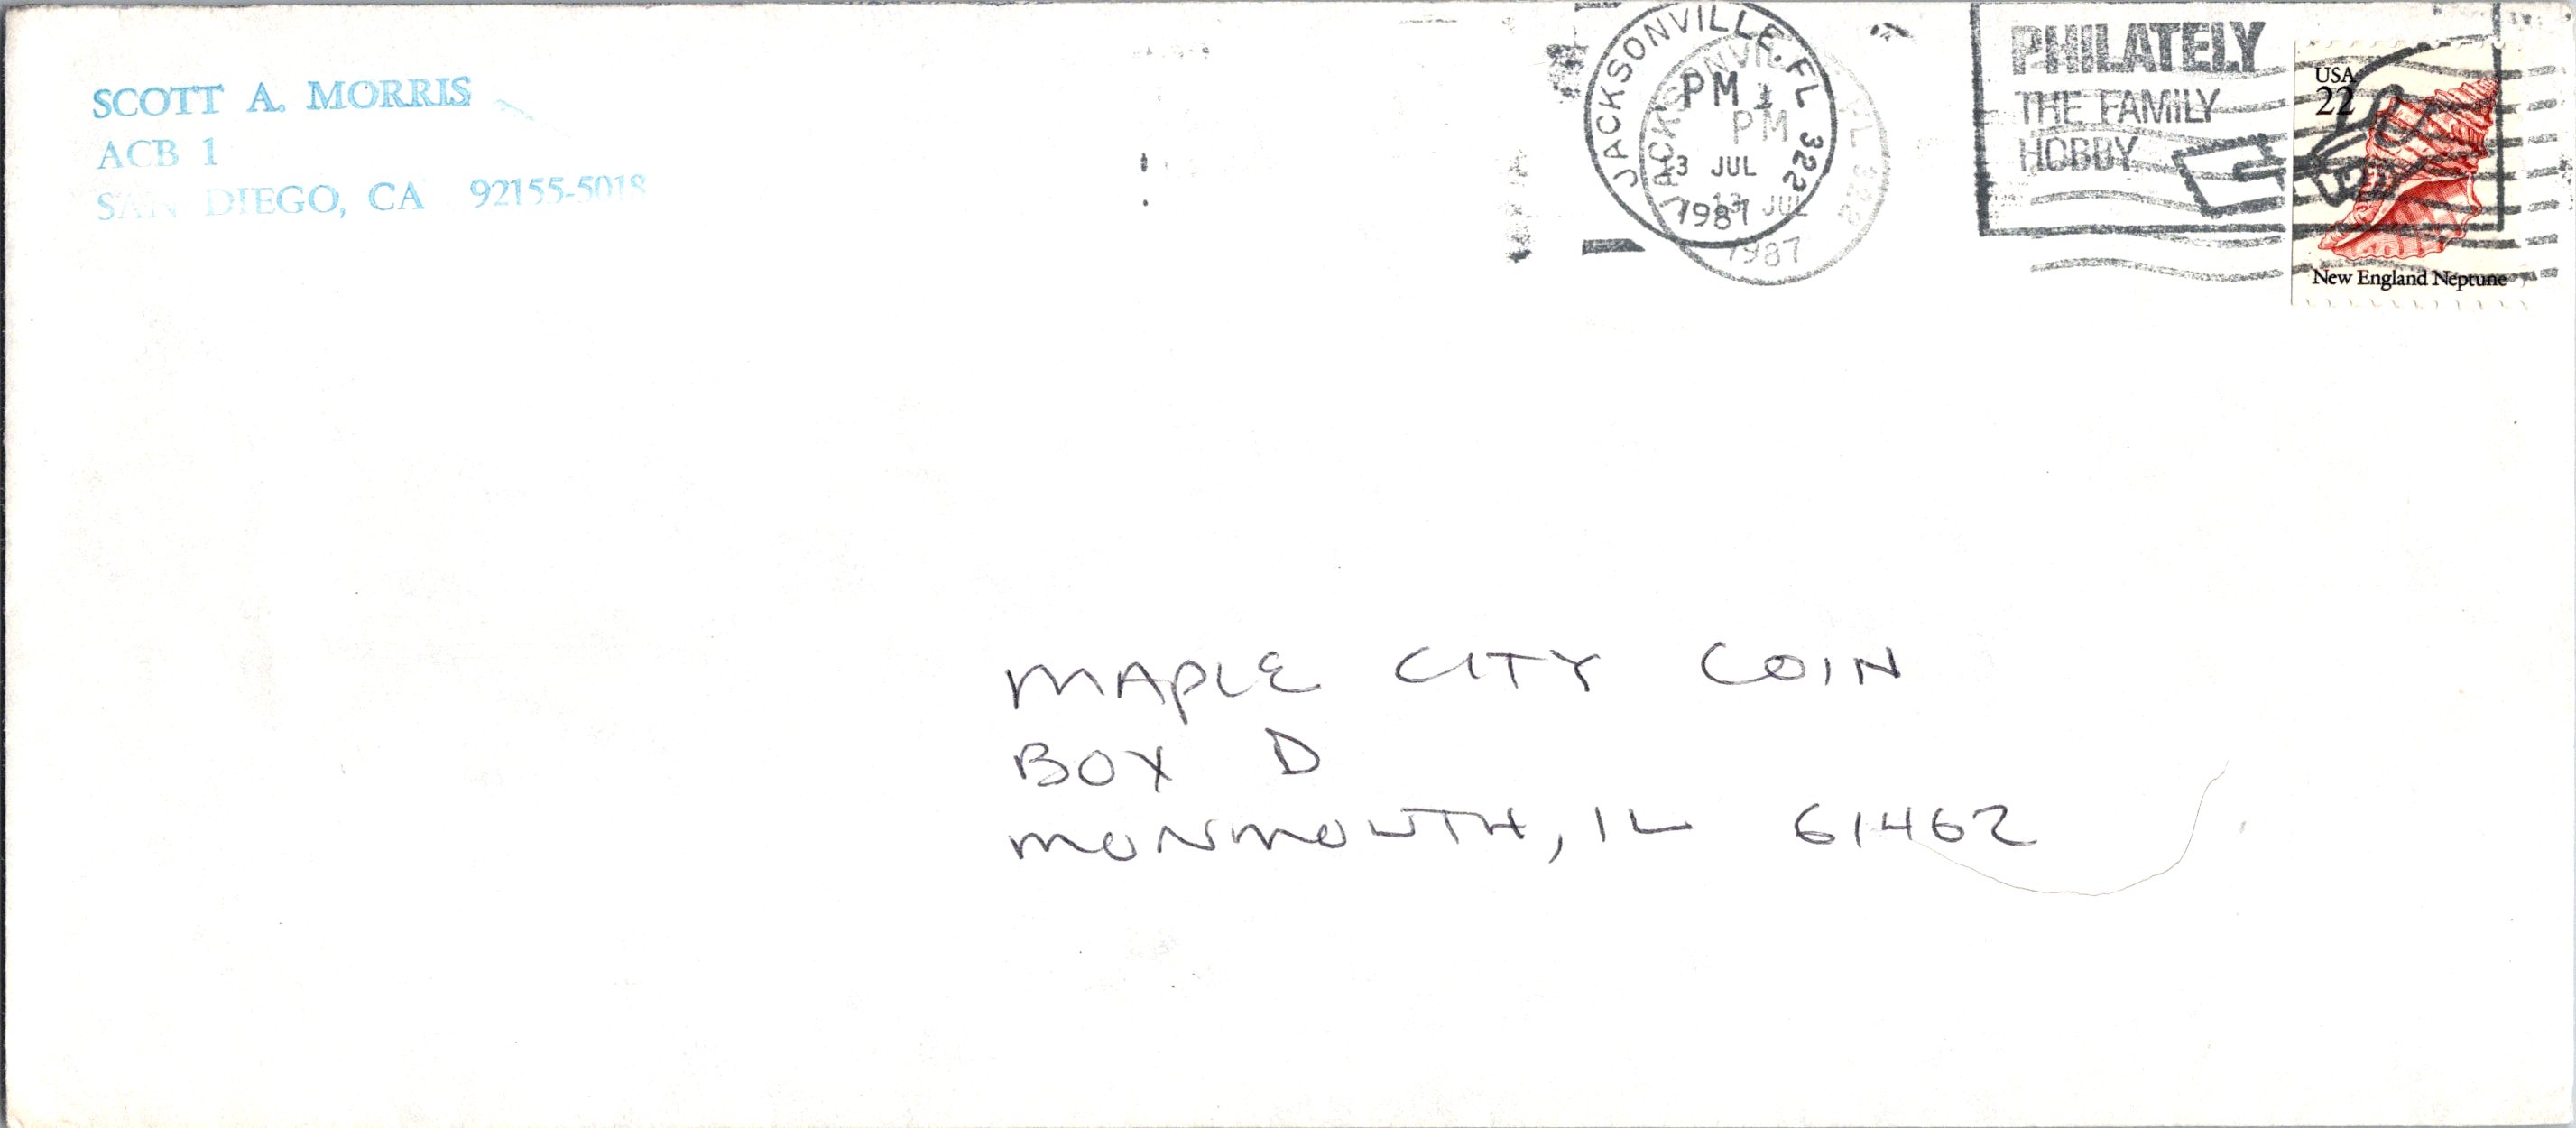 SCOTT A. MORRIS
ACB 1
SAN DIEGO, CA 92155-5018
JACKSONVILLE, FL 322
PM
13 JUL
1987
JACKSONVIL FL 322
PM
13 JUL
1987
PHILATELY
THE FAMILY
HOBBY
USA
22
New England Neptune
MAPLE CITY COIN
BOX D
MONMOUTH, IL 61462